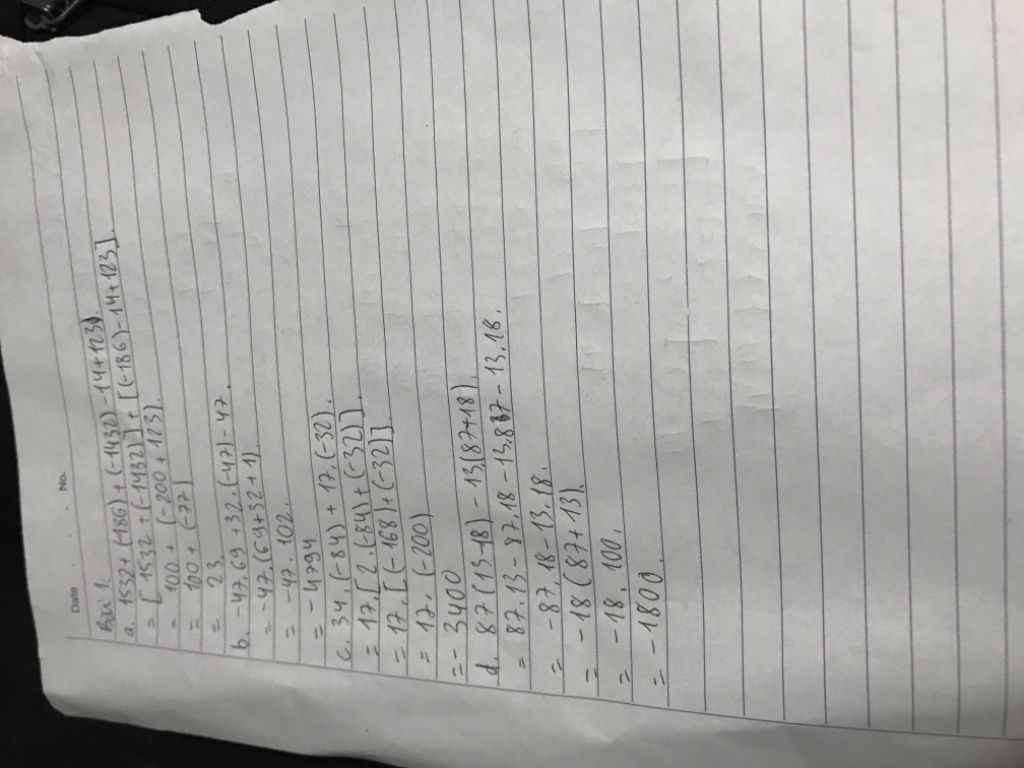 Date . . . No.
Bài 1:
a. 1532 + (-186) + (-1432) - 14 + 123).
= [1532 + (-1432)] + [(-186) - 14 + 123].
= 100 + (-200 + 123).
= 100 + (-77)
= 23.
b. -47.69 + 32.(-47) - 47.
= -47.(69 + 32 + 1).
= -47.102.
= -4794
c. 34.(-84) + 17.(-32).
= 17.[2.(-84) + (-32)].
= 17.[(-168) + (-32)].
= 17.(-200)
= -3400
d. 87(13-18) - 13.(87+18).
= 87.13 - 87.18 - 13.87 - 13.18.
= -87.18 - 13.18.
= -18(87+13).
= -18.100.
= -1800.